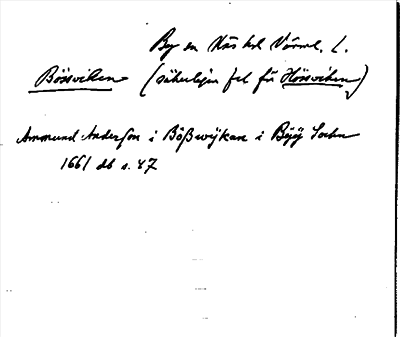 By sn Näs hd Värml. l.
Bössviken (säkerligen fel för Hössviken)
Ammund Anderßon i Bößwijkan i Bÿÿ Sochn
1661 db s. 87